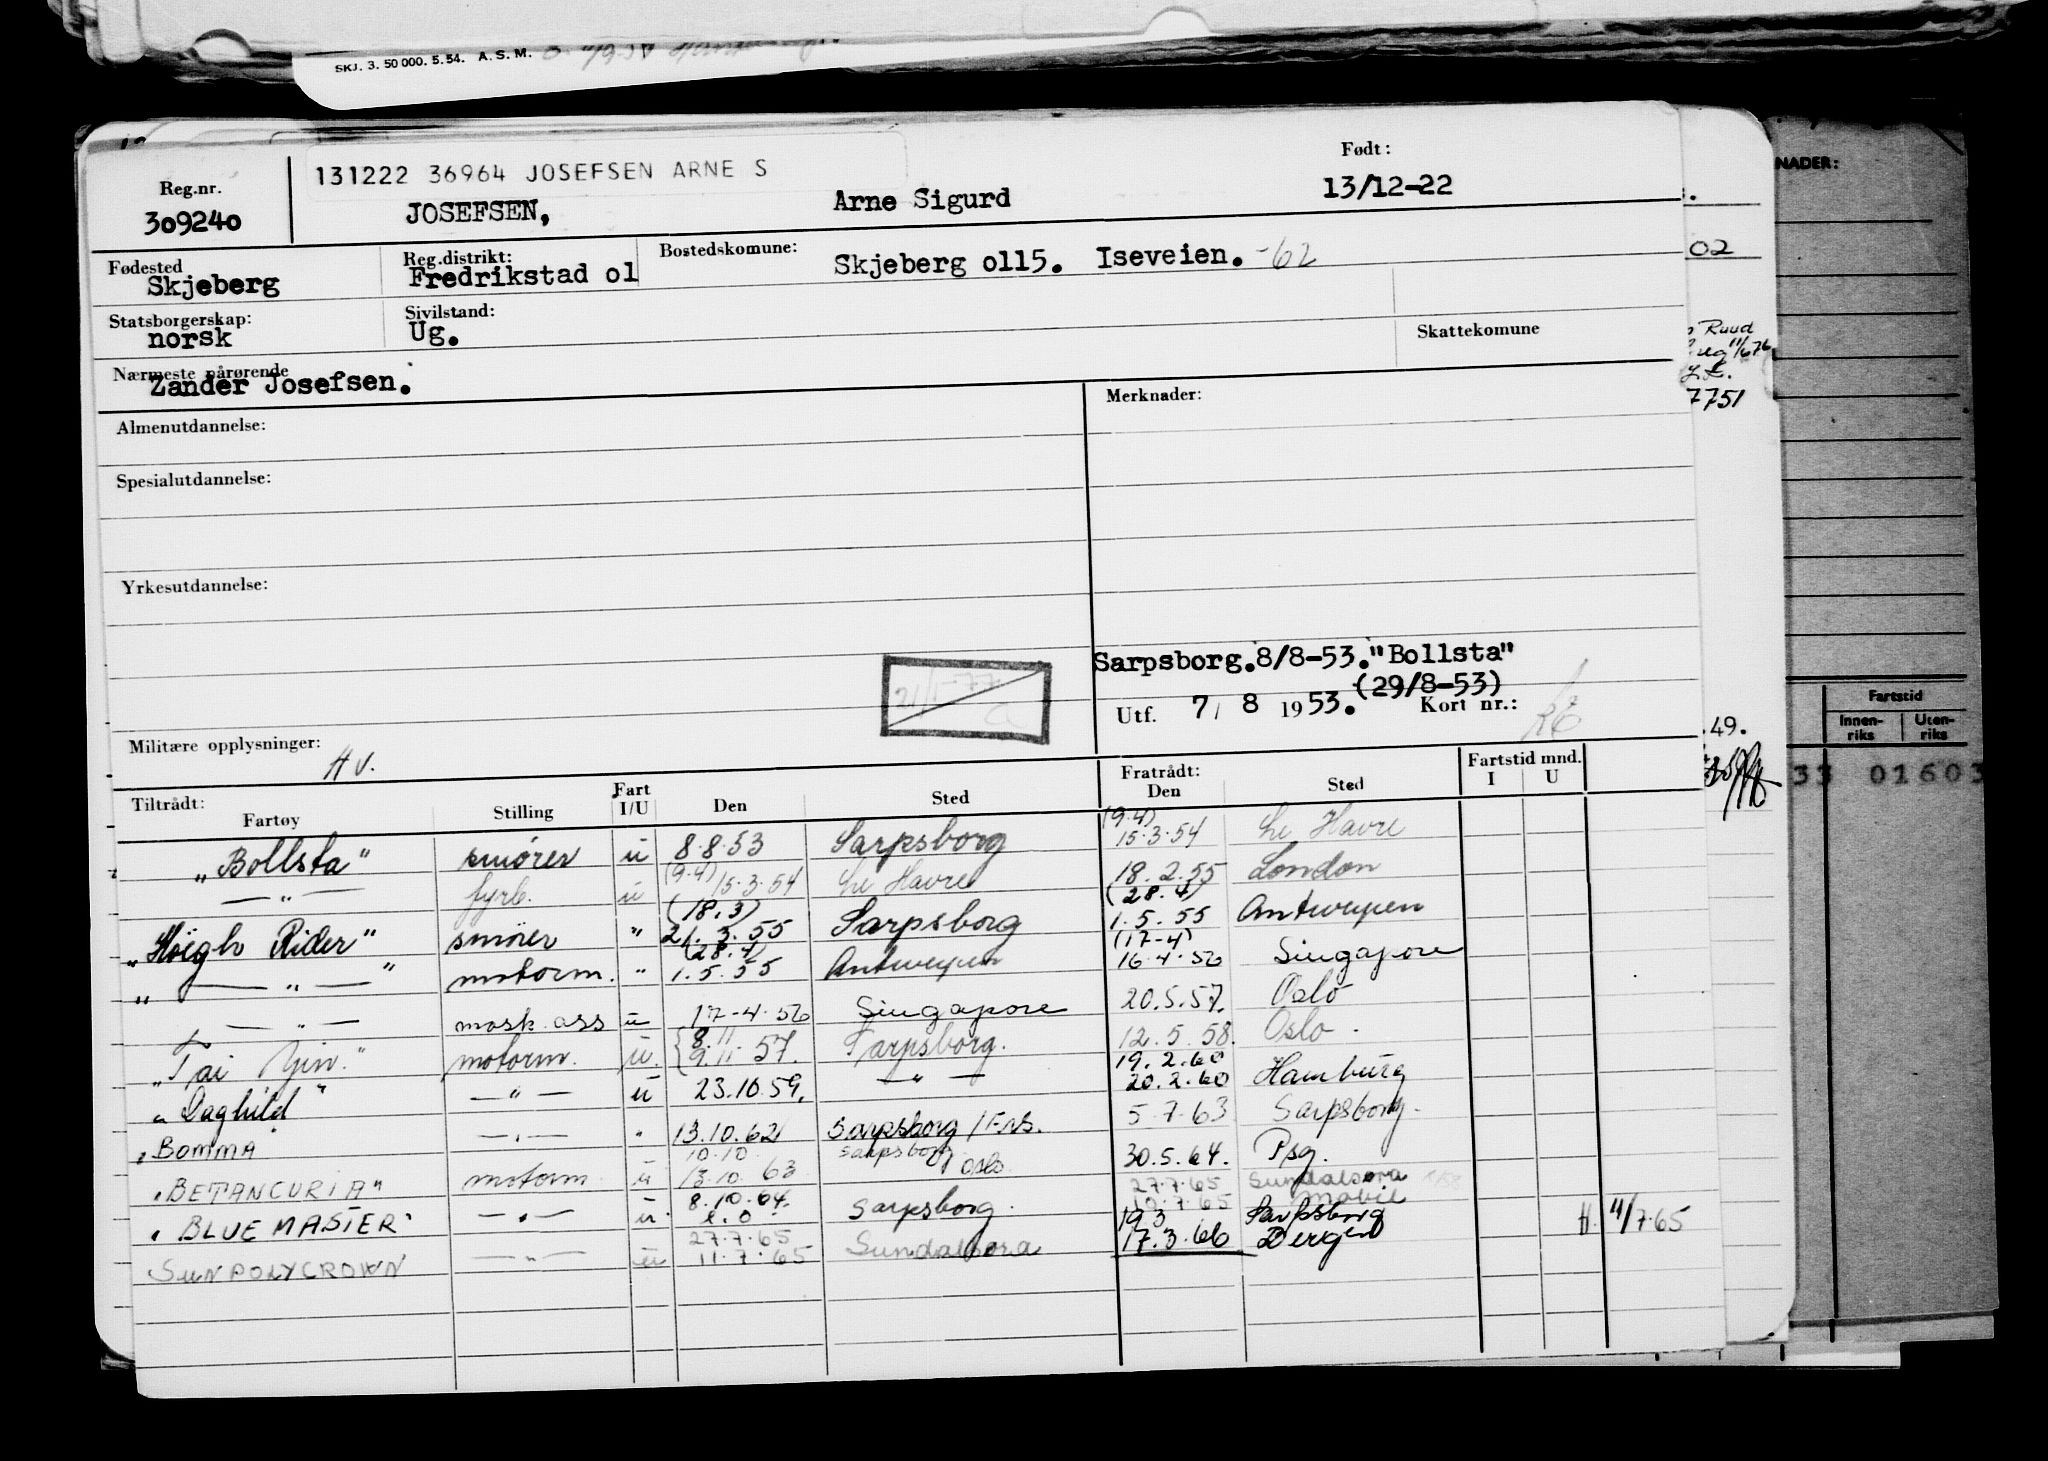 SKJ. 3. 50 000. 5.54. A. S. M.
NADER:
Reg.nr.
309240
131222 36964 JOSEFSEN ARNE S
JOSEFSEN,
Arne Sigurd
Født:
13/12-22
Fødested
Skjeberg
Reg.distrikt:
Fredrikstad ol
Bostedskomune:
Skjeberg oll5. Iseveien. -62
02
Statsborgerskap:
norsk
Sivilstand:
Ug.
Skattekomune
Ruud
Nærmeste pårørende
Zander Josefsen.
7751
Almenutdannelse:
Merknader:
Spesialutdannelse:
Yrkesutdannelse:
Sarpsborg.8/8-53."Bollsta"
(29/8-53)
21/1-77
Utf. 7/ 8 1953. Kort nr.:
Militære opplysninger:
HV.
49.
Fartstid
Innen-riks Uten-riks
33 01603
Tiltrådt:
Fartøy Stilling Fart I/U Den Sted Fratrådt: Den Sted Fartstid mnd. I U
"Bollsta" smører u 8.8.53 Sarpsborg (9.4) 15.3.54 Le Havre
—"— fyrb. u (9.4) 15.3.54 Le Havre 18.2.55 London
"Høegh Rider" smører " (18.3) 21.3.55 Sarpsborg (28.4) 1.5.55 Antwerpen
" —"— " motorm. " (28.4) 1.5.55 Antwerpen (17-4) 16.4.56 Singapore
—"— mask.ass u 17-4.56 Singapore 20.5.57. Oslo
"Tai Yin." motorm. u. 8.11 9.11.57. Sarpsborg. 12.5.58. Oslo.
"Daghild" —"— u 23.10.59. —"— 19.2.60 20.2.60 Hamburg
"BOMMA" —"— " 13.10.62 Sarpsborg/Frs. 5.7.63 Sarpsborg.
"BETANCURIA" motorm u 10.10 13.10.63 Sarpsborg Oslo 30.5.64. Psg.
"BLUE MASTER" —"— u 8.10.64. Sarpsborg. 27.7.65 10.7.65 Sundalsøra Mobil
H. 11/7.65
SUNPOLYCROWN —"— u 27.7.65 11.7.65 Sundalsøra 19.3 17.3.66 Sarpsborg Bergen